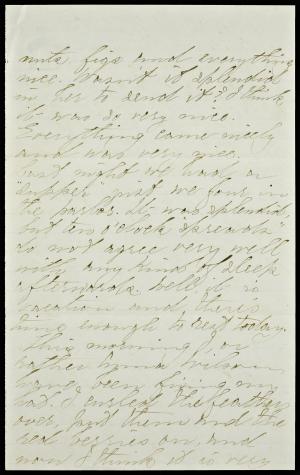 nuts, figs and everything
nice. Wasn't it splendid
in her to send it? I think
it was so very nice.
Everything came nicely
and was very nice.
Last night we had a
"supper" just we four, in
the parlor. It was splendid,
but ten o'clock spreads
do not agree very well
with any kind of sleep
afterwards. Well it is
vacation and there's
time enough to rest today.
This morning, or
rather have been fixing my
hat. I curled the feather
over, put them and the
red berries on, and
now I think it is very